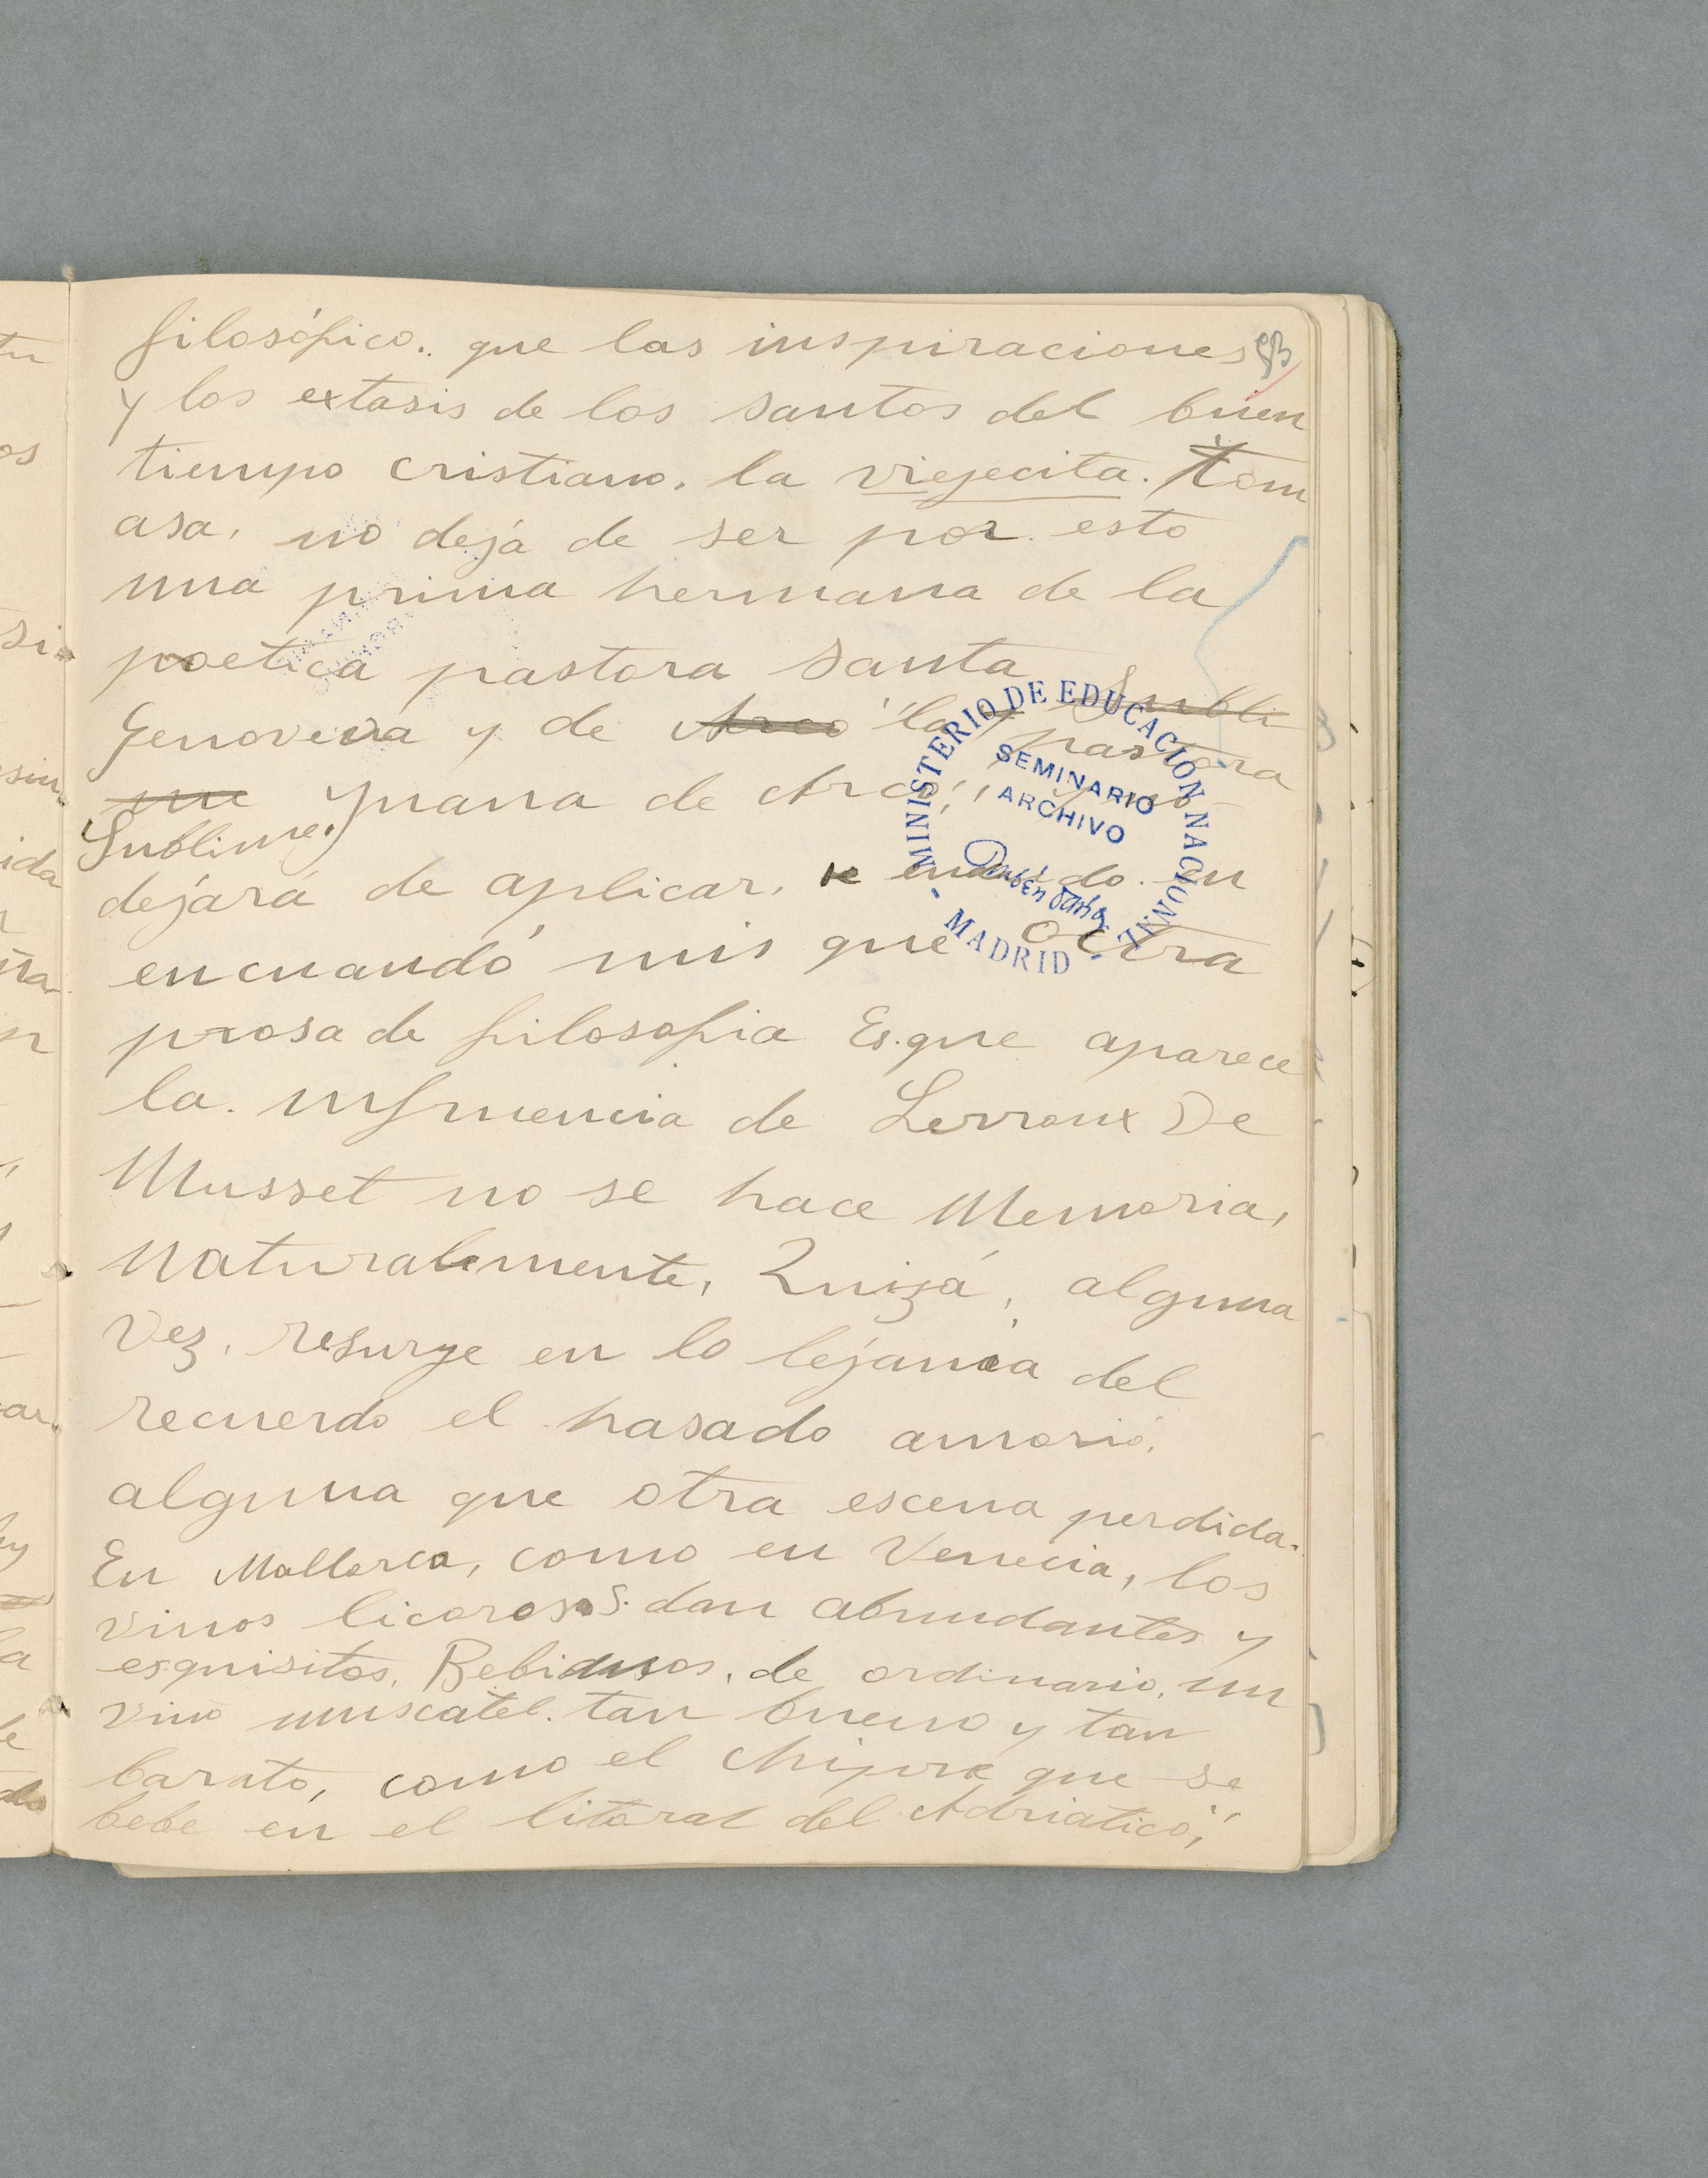 filosófico. que las inspiraciones
y los extasis de los santos del buen
tiempo cristiano, la viejecita. Tom
asa, no dejá de ser por esto
una prima hermana de la
poetica pastora Santa
Genoveva y de Arco la y Subli
me pastora
Sublime, Juana de Arco,
dejará de aplicar, cuando en
encuando mis que otra
prosa de filosofia Es que aparece
la influencia de Lerroux De
Musset no se hace Memoria,
Naturalemente, Quizá, alguna
Vez, resurge en lo lejania del
recuerdo el pasado amorio,
alguna que otra escena perdida.
En Mallorca, como en Venecia, los
vinos licorosos. dan abundantes y
exquisitos, Bebiamos, de ordinario, un
vino muscatel. tan bueno y tan
barato, como el Chipre que se
bebe en el litoral del Adriatico,
MINISTERIO DE EDUCACIÓN NACIONAL
SEMINARIO
ARCHIVO
Rubén Darío
- MADRID -